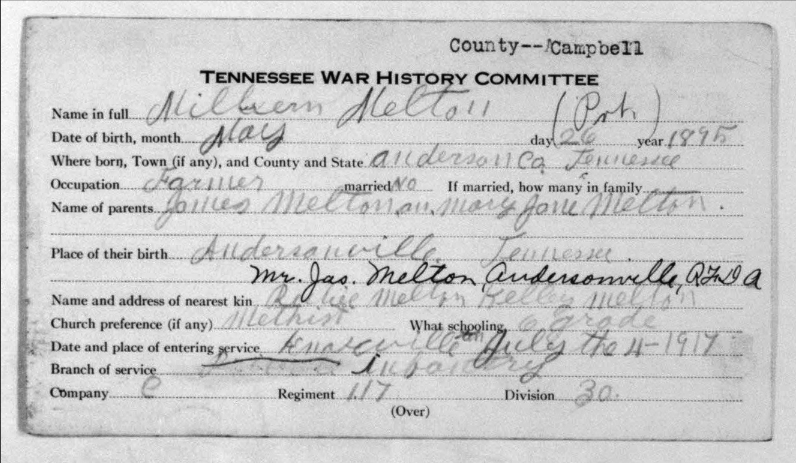 County--Campbell
TENNESSEE WAR HISTORY COMMITTEE
Name in full Milburn Melton (Prt.)
Date of birth, month May day 26 year 1895
Where born, Town (if any), and County and State anderson Co, Tennessee
Occupation Farmer married No If married, how many in family
Name of parents James Melton an. mary Jane Melton.
Place of their birth Andersonville Tennessee.
Mr. Jas. Melton, Andersonville, R.F.D
Name and address of nearest kin Melton Kelley Melton
Church preference (if any) Methist What schooling grade
Date and place of entering service Knoxville July the 4-1917
Branch of service infantry
Company C Regiment 117 Division 30.
(Over)